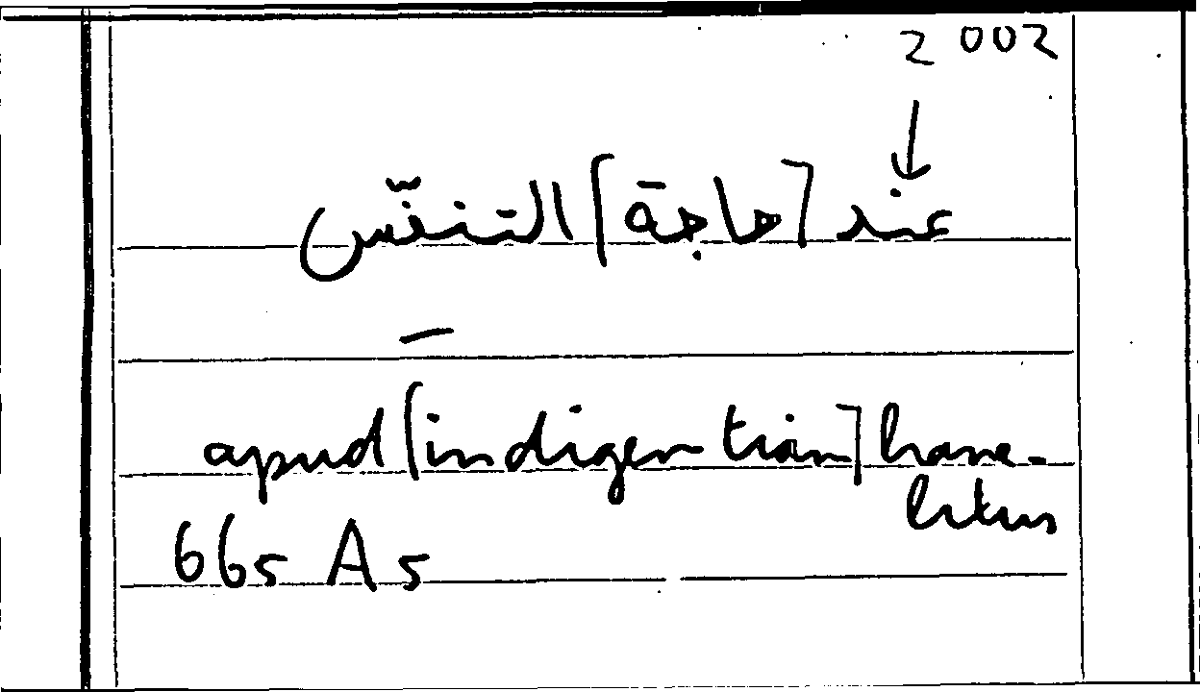 2002
↓
عند [حاجة] التنفّس
–
apud [indigentiam] hane-
litus
665 A 5